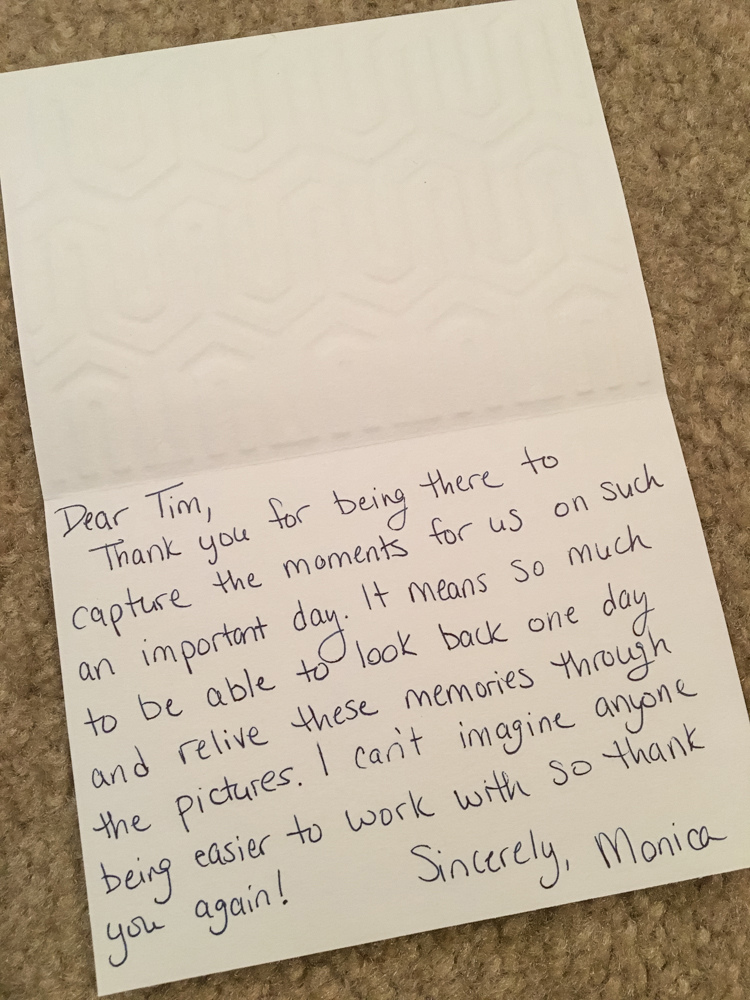 Dear Tim,
Thank you for being there to
capture the moments for us on such
an important day. It means so much
to be able to look back one day
and relive these memories through
the pictures. I can't imagine anyone
being easier to work with so thank
you again!
Sincerely, Monica